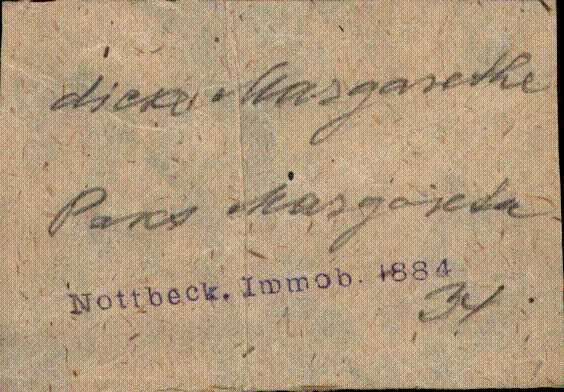 dicke Margarethe
Paks Margareta
Nottbeck. Immob. 1884
34